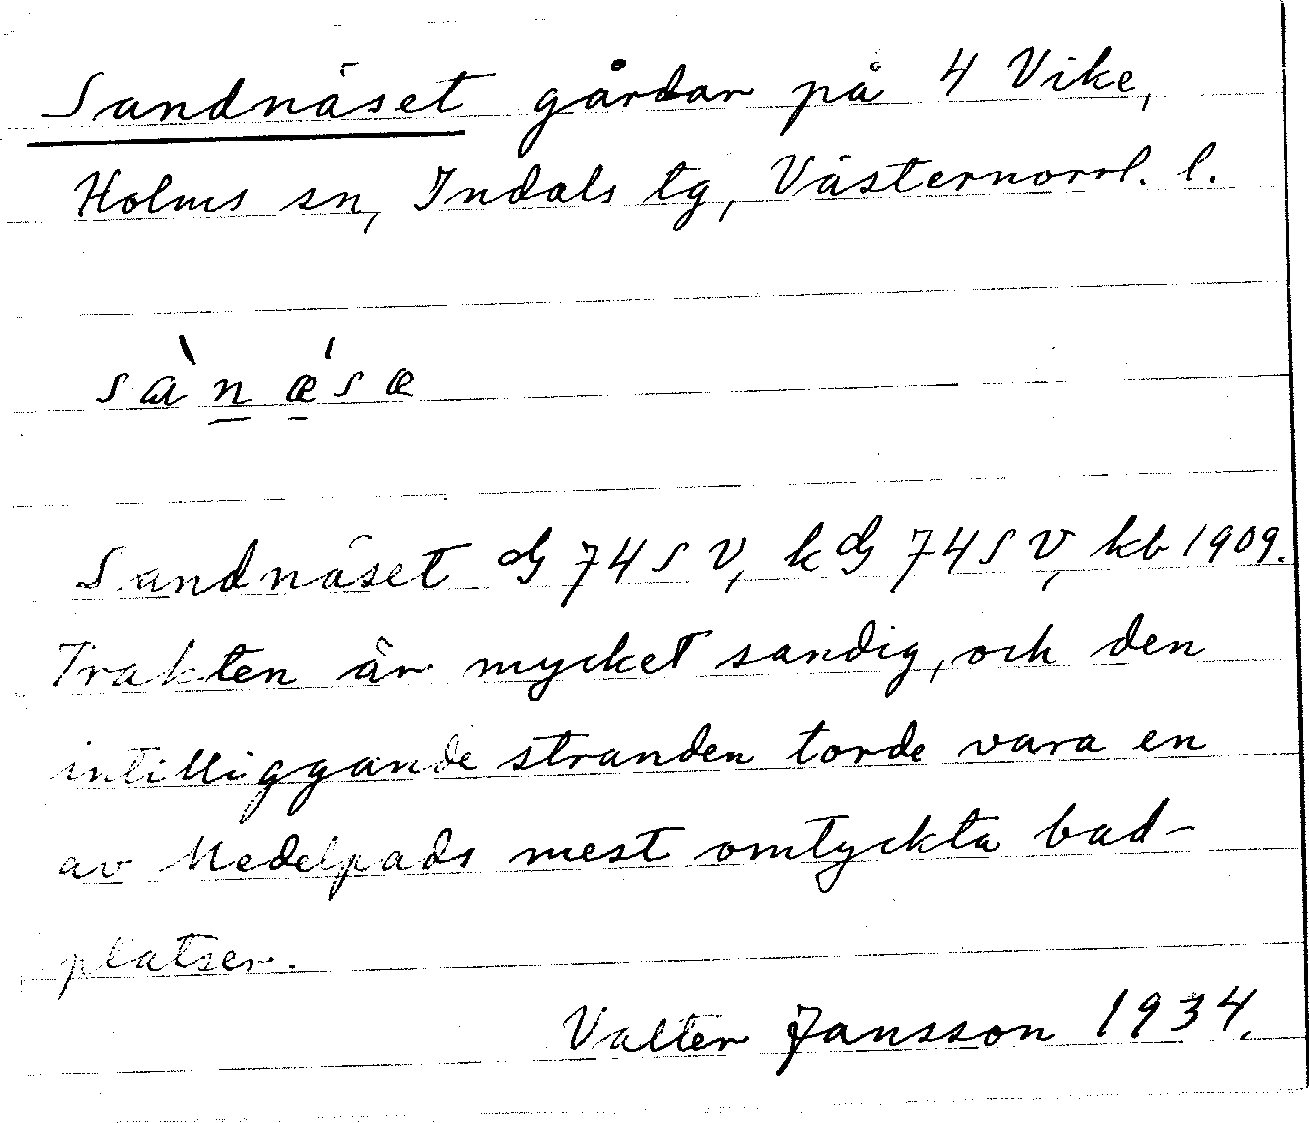 Sandnäset gårdar på 4 Vike,
Holms sn, Indals tg, Västernorrl. l.
sànæ´sæ
Sandnäset G 74 SV, k G 74 SV, kb 1909.
Trakten är mycket sandig, och den
intilliggande stranden torde vara en
av Medelpads mest omtyckta bad-
platser.
Valter Jansson 1934.